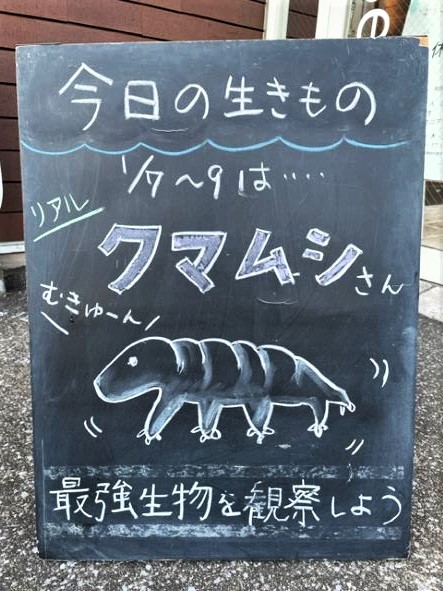 今日の生きもの
1/7〜9は‥‥
リアル
クマムシさん
むきゅーん
最強生物を観察しよう